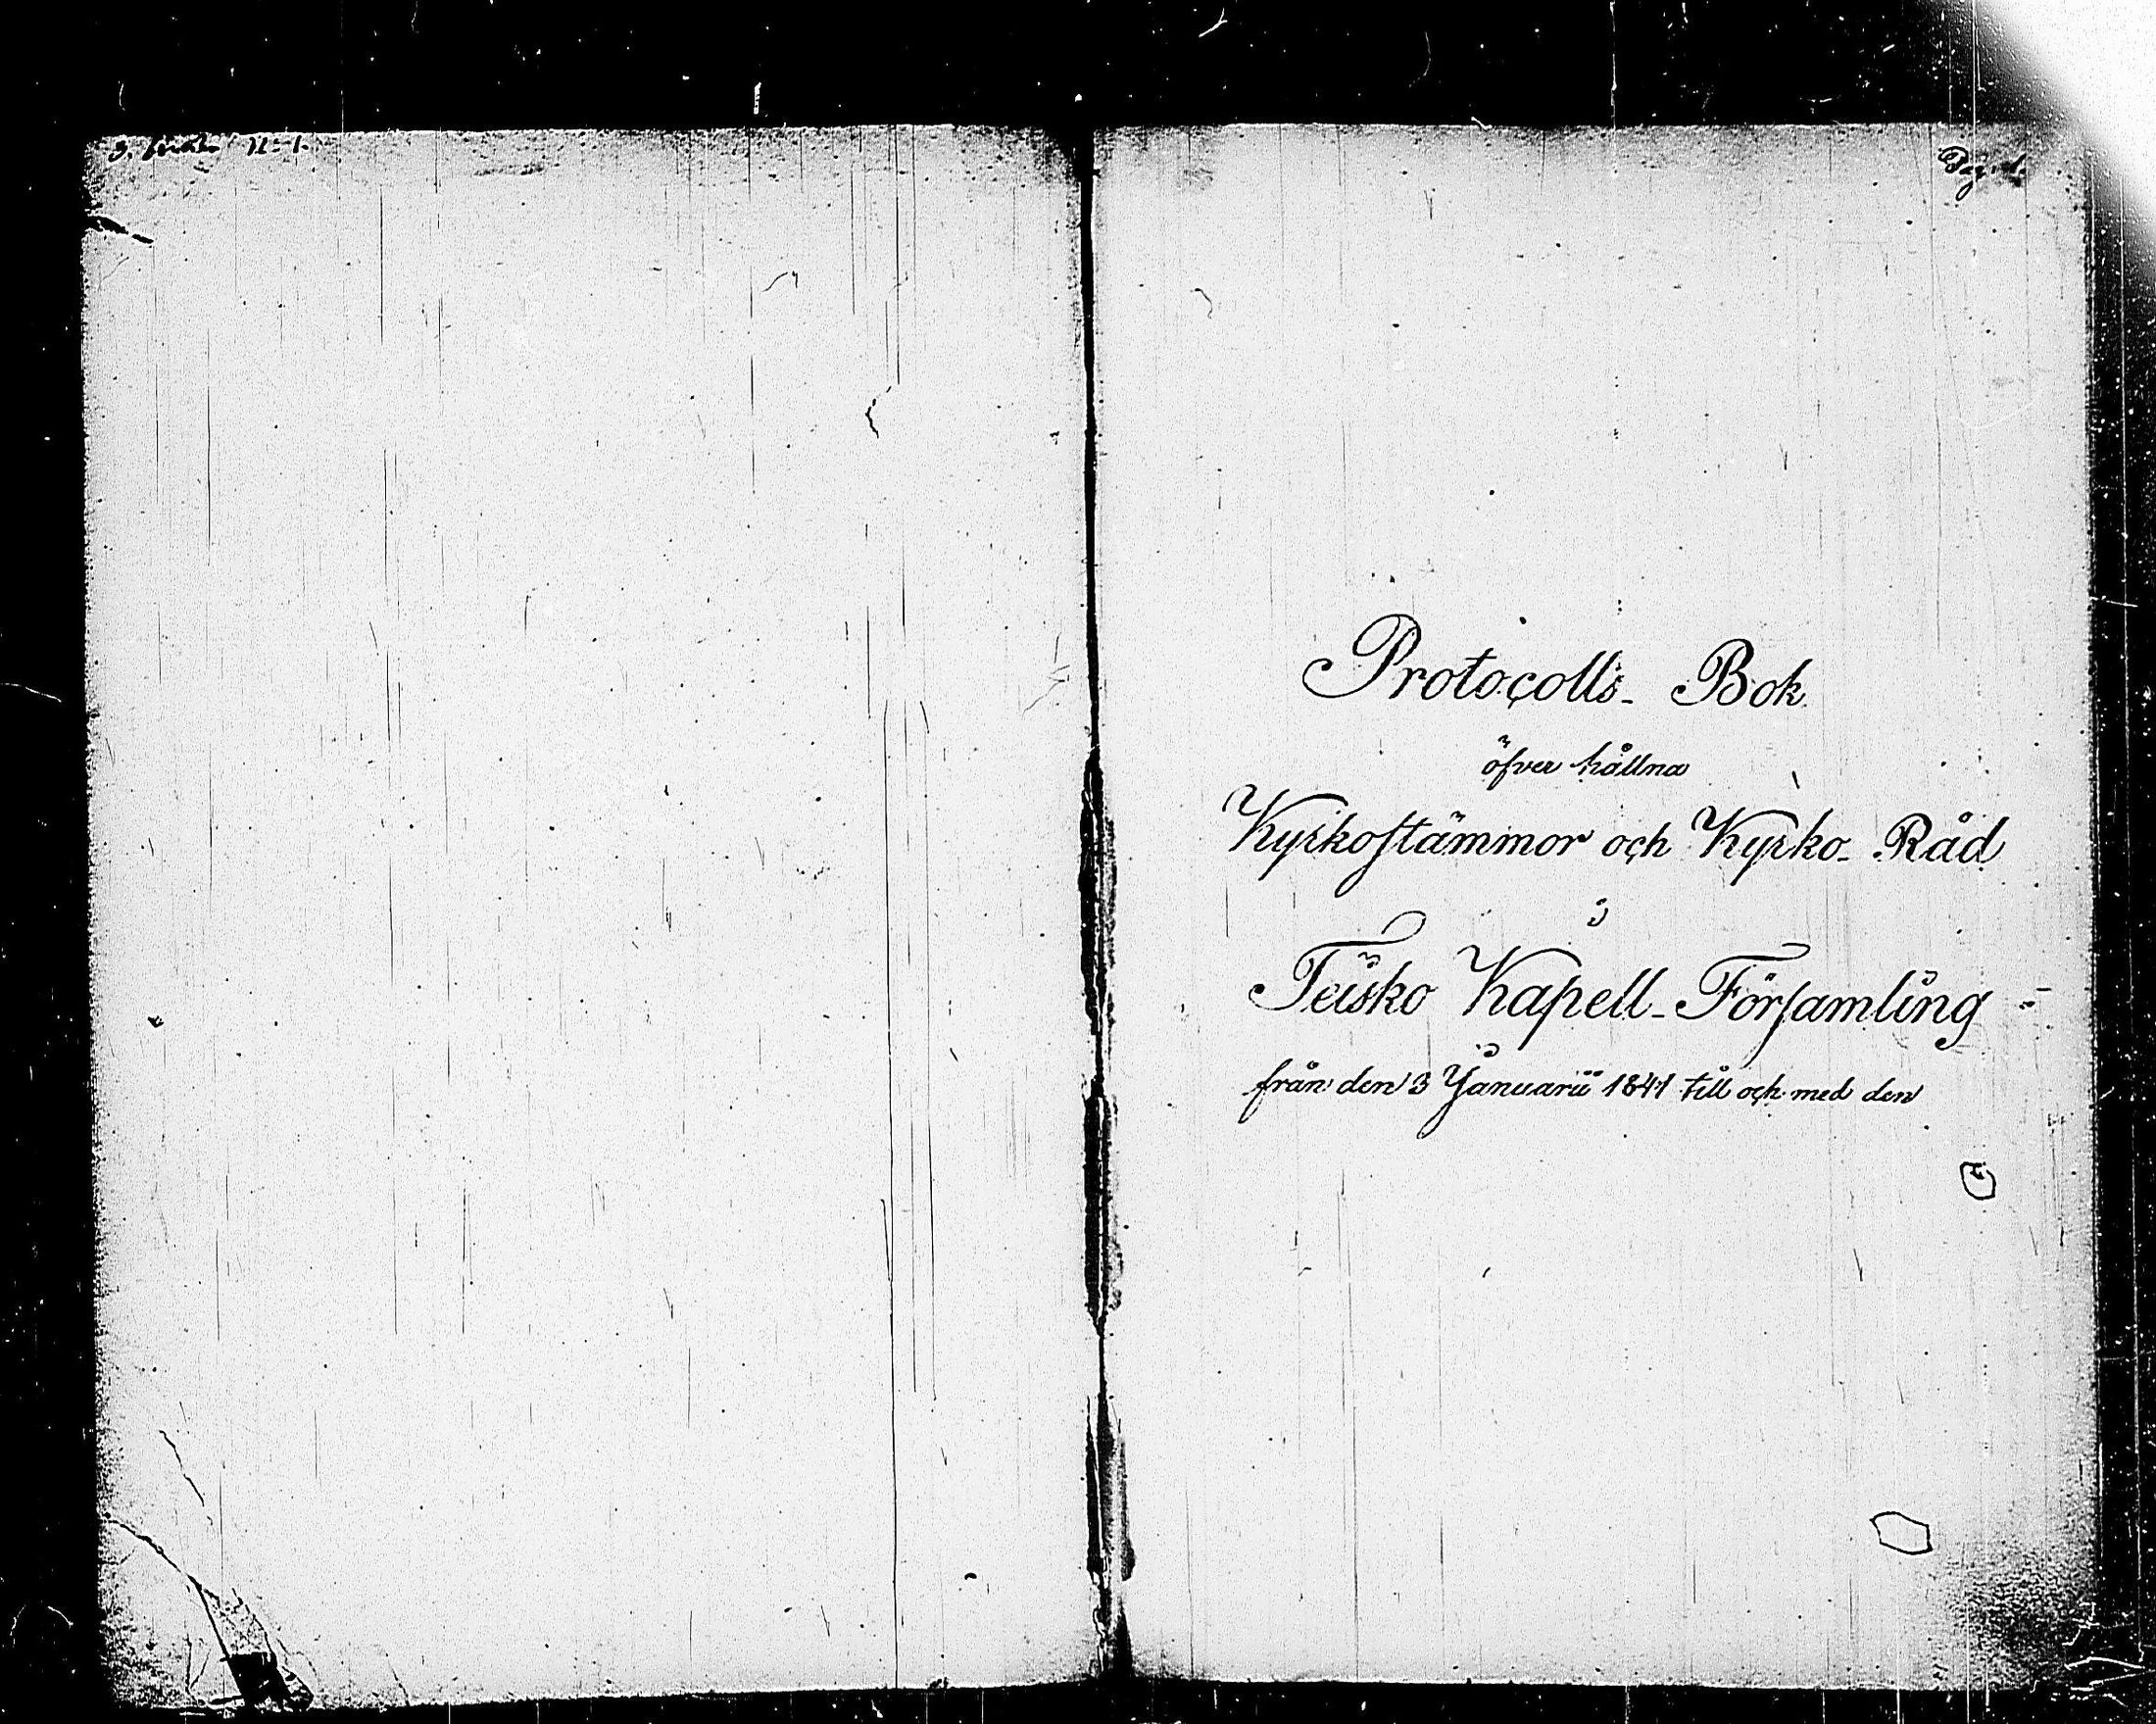 Pag. 1.
Protocolls- Bok
öfver hållna
Kyrkostämmor och Kyrko- Råd
i
Teisko Kapell- Församling
från den 3 Januarii 1841 till och med den